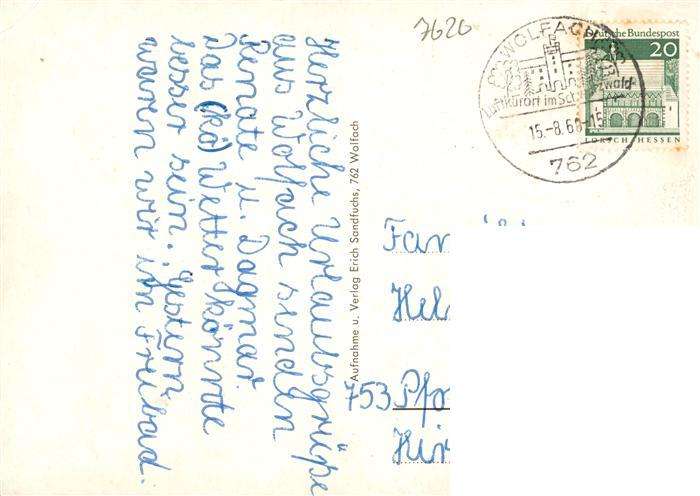 7620
WOLFACH
Luftkurort im Schwarzwald
15.-8.68-15
762
Deutsche Bundespost
20
LORSCH/HESSEN
Herzliche Urlaubsgrüße
aus Wolfach senden
Renate u. Dagmar.
Das (kö) Wetter könnte
besser sein. Gestern
waren wir im Freibad.
Aufnahme u. Verlag Erich Sandfuchs, 762 Wolfach
Fam
Hel
753 Pfo
Hir